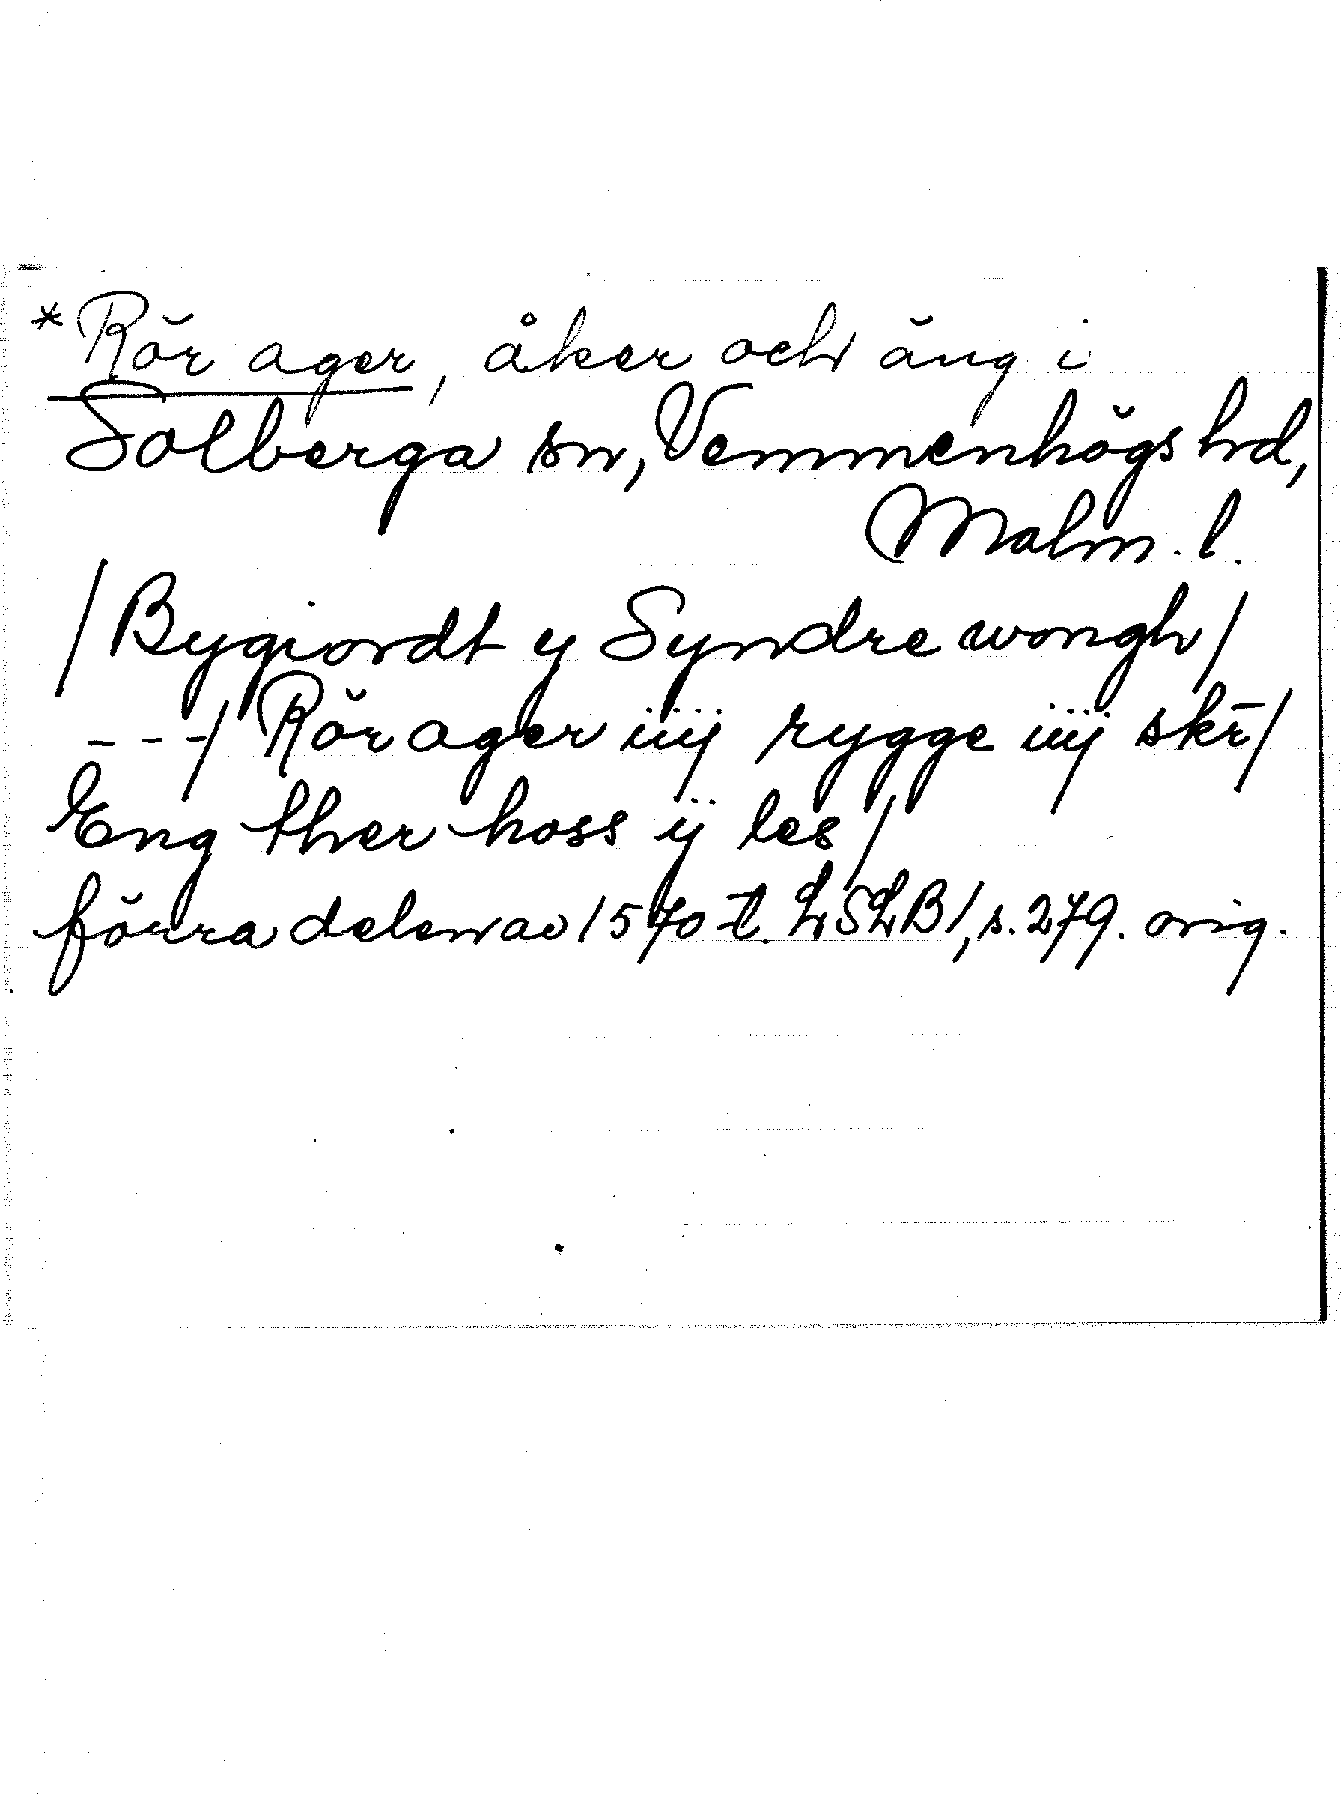 *Rör ager, åker och äng i
Solberga sn, Vemmenhögs hd,
Malm. l.
/Bygiordt y Syndre wongh/
---/Rör ager iiij rygge iiij skr̄/
Eng ther hoss ij les/
förra delen av 1570-t. LSLB1, s. 279. orig.